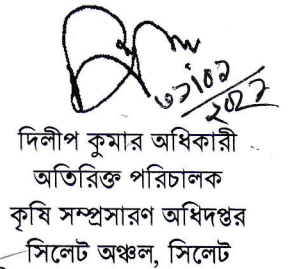 দিলীপ কুমার অধিকারী
অতিরিক্ত পরিচালক
কৃষি সম্প্রসারণ অধিদপ্তর
সিলেট অঞ্চল, সিলেট